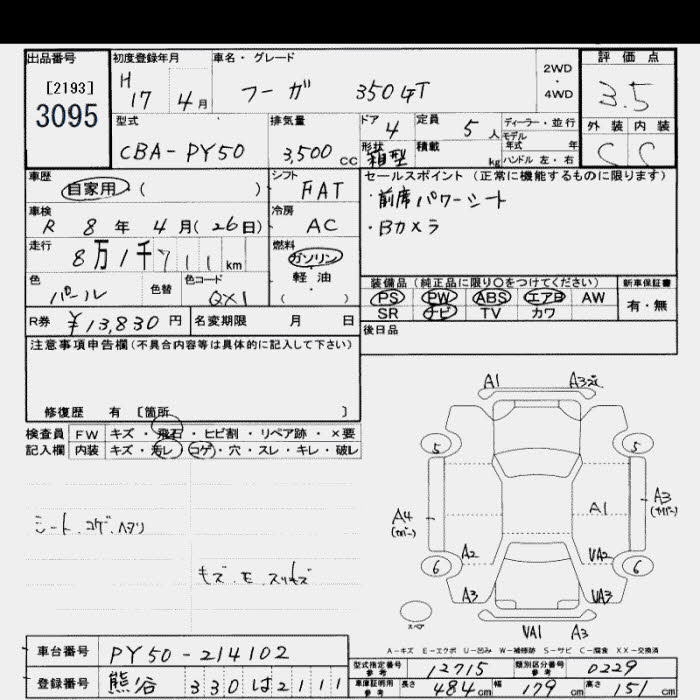 出品番号
[2193]
3095
初度登録年月
H 17 4月
車名・グレード
フーガ 350GT
2WD
・
4WD
評価点
3.5
外装 内装
C C
型式
CBA-PY50
排気量
3,500 cc
ドア 4
形状 箱型
定員 5 人
積載 kg
ディーラー・並行
モデル年式 年
ハンドル 左・右
車歴
自家用 ( )
車検
R 8年 4月(26日)
走行
8万1千711 km
色
パール
色替
色コード
QX1
シフト
FAT
冷房
AC
燃料
ガソリン
軽油
( )
セールスポイント(正常に機能するものに限ります)
・前席パワーシート
・Bカメラ
装備品(純正品に限り〇をつけてください)
PS PW ABS エアB AW
SR ナビ TV カワ
新車保証書
有・無
R券 ¥13,830円 名変期限 月 日
後日品
注意事項申告欄(不具合内容等は具体的に記入して下さい)
修復歴 有 [箇所 ]
検査員 FW キズ・飛石・ヒビ割・リペア跡・×要
記入欄 内装 キズ・汚レ・コゲ・穴・スレ・キレ・破レ
シート.コゲ.ヘタリ
A1
5 5
A4
A1
A3
A2 UA2
6 6
A3 UA3
スペア
UA1 A3
A-キズ E-エクボ U-凹み W-補修跡 S-サビ C-腐食 XX-交換済
車台番号 PY50-214102
登録番号 熊谷 330は2111
型式指定番号 参考 12715
類別区分番号 参考 0229
車庫証明用 参考 長さ 484cm 幅 179cm 高さ 151cm